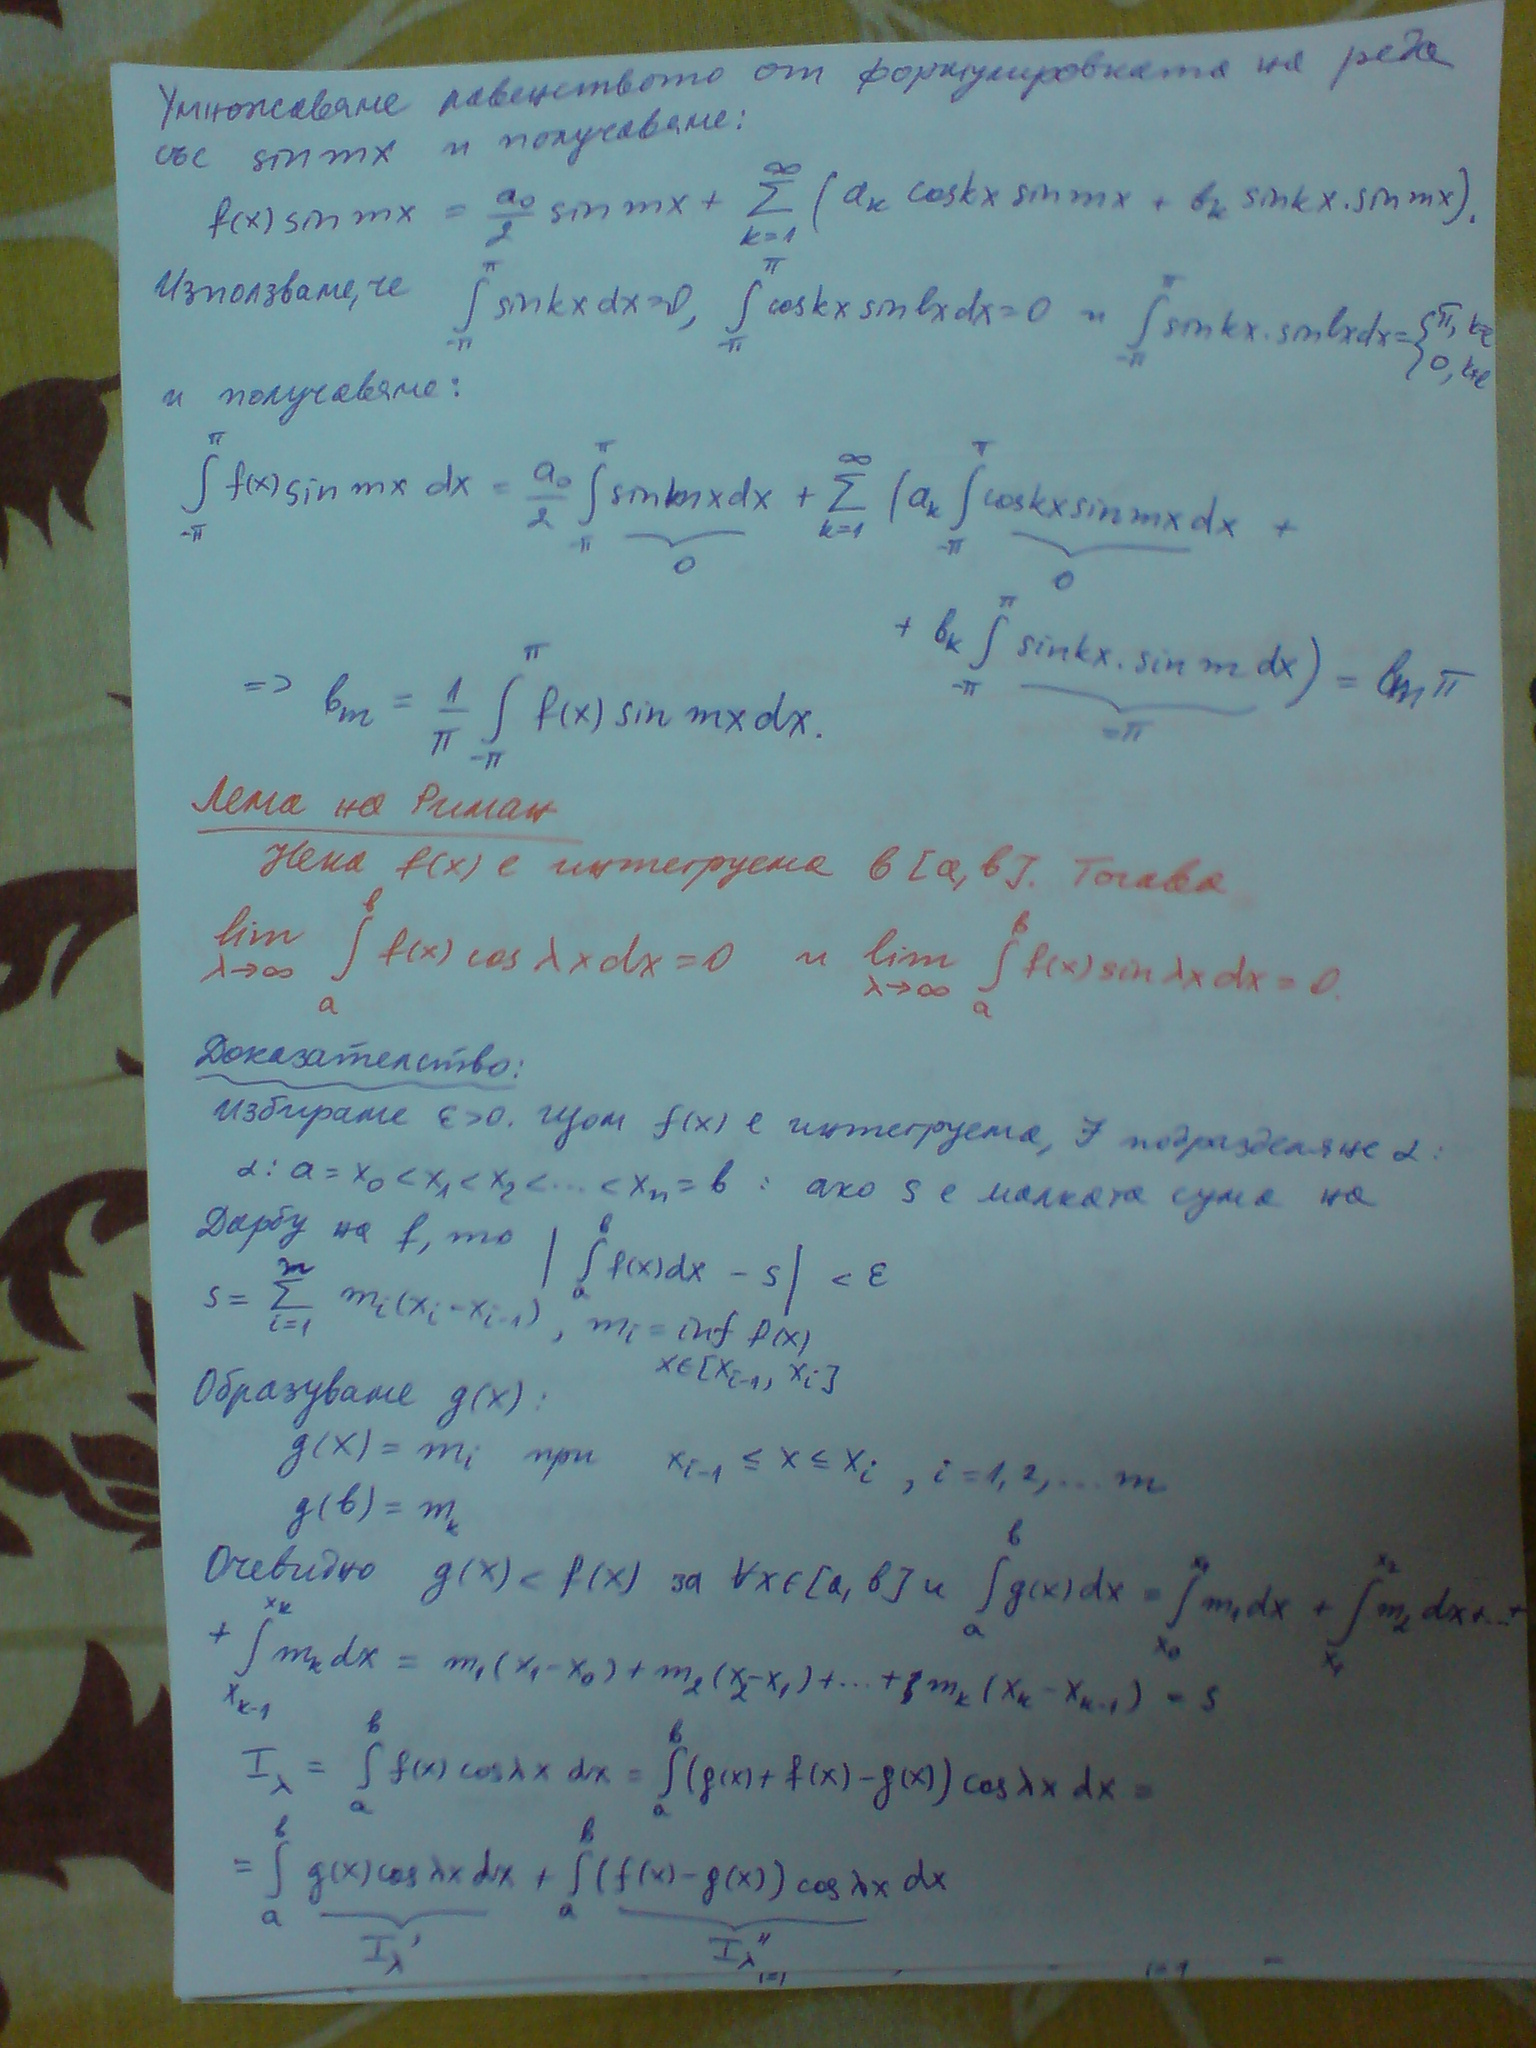 Умножаваме равенството от формулировката на реда
със sin mx и получаваме:
f(x) sin mx = a₀/2 sin mx + ∑_{k=1}^{∞} (aₖ cos kx sin mx + bₖ sin kx . sin mx).
Използваме, че ∫_{-π}^{π} sin kx dx = 0, ∫_{-π}^{π} cos kx sin lx dx = 0 и ∫_{-π}^{π} sin kx . sin lx dx = {π, k=l; 0, k≠l
и получаваме:
∫_{-π}^{π} f(x) sin mx dx = a₀/2 ∫_{-π}^{π} sin mx dx + ∑_{k=1}^{∞} (aₖ ∫_{-π}^{π} cos kx sin mx dx +
0 0
+ bₖ ∫_{-π}^{π} sin kx . sin m dx) = bₘ π
=π
=> bₘ = 1/π ∫_{-π}^{π} f(x) sin mx dx.
Лема на Риман
Нека f(x) е интегруема в [a, b]. Тогава
lim_{λ→∞} ∫_{a}^{b} f(x) cos λx dx = 0 и lim_{λ→∞} ∫_{a}^{b} f(x) sin λx dx = 0.
Доказателство:
Избираме ε>0. Щом f(x) е интегруема, ∃ подразделяне α:
α: a = x₀ < x₁ < x₂ < ... < xₙ = b : ако s е малката сума на
Дарбу на f, то |∫_{a}^{b} f(x) dx - s| < ε
s = ∑_{i=1}^{m} mᵢ(xᵢ - xᵢ₋₁), mᵢ = inf f(x)
x∈[xᵢ₋₁, xᵢ]
Образуваме g(x):
g(x) = mᵢ при xᵢ₋₁ ≤ x ≤ xᵢ, i = 1, 2, ... m
g(b) = mₖ
Очевидно g(x) < f(x) за ∀x∈[a, b] и ∫_{a}^{b} g(x) dx = ∫_{x₀}^{x₁} m₁ dx + ∫_{x₁}^{x₂} m₂ dx + ... +
+ ∫_{xₖ₋₁}^{xₖ} mₖ dx = m₁(x₁ - x₀) + m₂(x₂ - x₁) + ... + mₖ(xₖ - xₖ₋₁) = s
I_λ = ∫_{a}^{b} f(x) cos λx dx = ∫_{a}^{b} (g(x) + f(x) - g(x)) cos λx dx =
= ∫_{a}^{b} g(x) cos λx dx + ∫_{a}^{b} (f(x) - g(x)) cos λx dx
I_λ' I_λ''
i=1 i=1